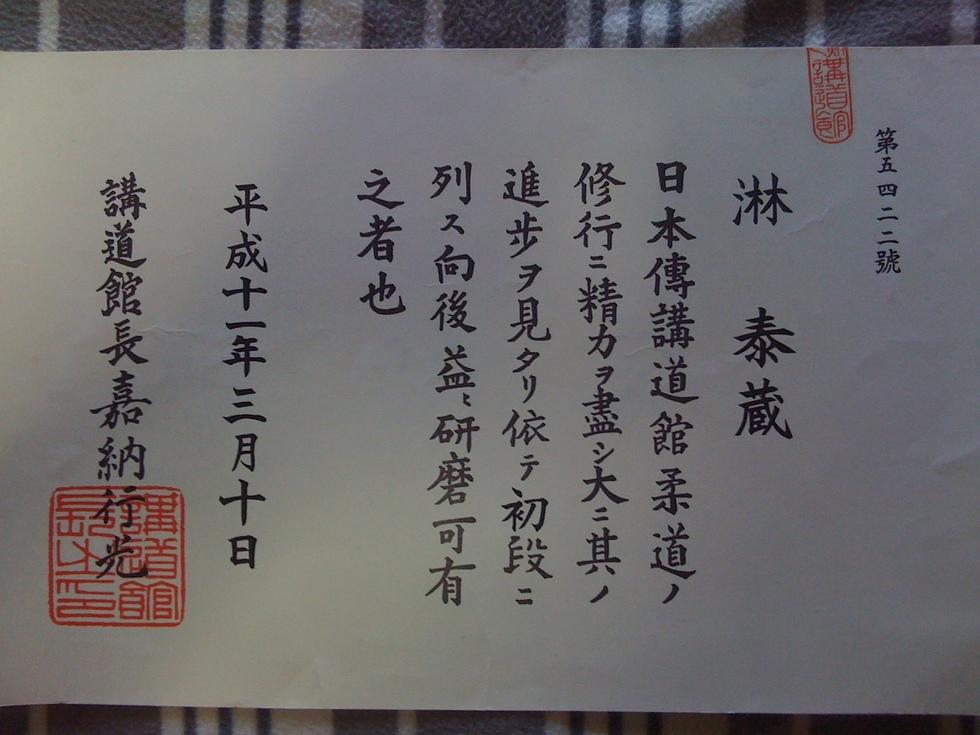 第五四二二號
淋 泰蔵
日本傳講道館柔道ノ
修行ニ精力ヲ盡シ大ニ其ノ
進歩ヲ見タリ依テ初段ニ
列ス向後益〻研磨可有
之者也
平成十一年三月十日
講道館長嘉納行光
講道館長之印